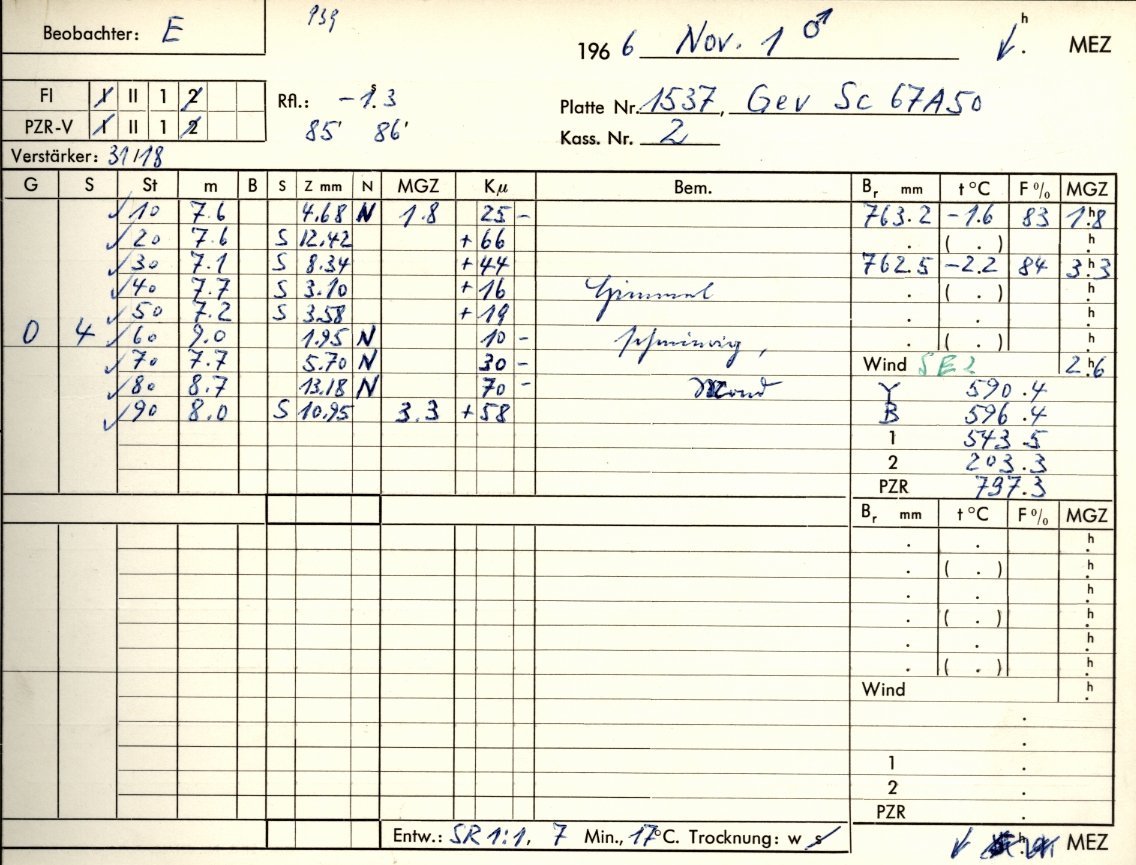 Beobachter: E 939
196 6 Nov. 1 ♂ h . MEZ
FI I II 1 2 Rfl.: -1.s3 Platte Nr. 1537, Gev Sc 67A50
PZR-V I II 1 2 85' 86' Kass. Nr. 2
Verstärker: 31/18
G S St m B S Z mm N MGZ Kμ Bem. Br mm t °C F % MGZ
10 7.6 4.68 N 1.8 25 - 763.2 -1.6 83 1.h8
20 7.6 S 12.42 + 66 . ( . ) h.
30 7.1 S 8.34 + 44 762.5 -2.2 84 3.h3
40 7.7 S 3.10 + 16 Himmel . ( . ) h.
50 7.2 S 3.58 + 19 . . h.
0 4 60 9.0 1.95 N 10 - schmierig, . ( . ) h.
70 7.7 5.70 N 30 - Wind SE2 2.h6
80 8.7 13.18 N 70 - Mond Y 590.4
90 8.0 S 10.95 3.3 + 58 B 596.4
1 543.5
2 203.3
PZR 797.3
Br mm t °C F % MGZ
. . h.
. ( . ) h.
. . h.
. ( . ) h.
. . h.
. ( . ) h.
Wind h.
.
.
1 .
2 .
PZR .
Entw.: SR 1:1, 7 Min., 17°C. Trocknung: w s h . MEZ